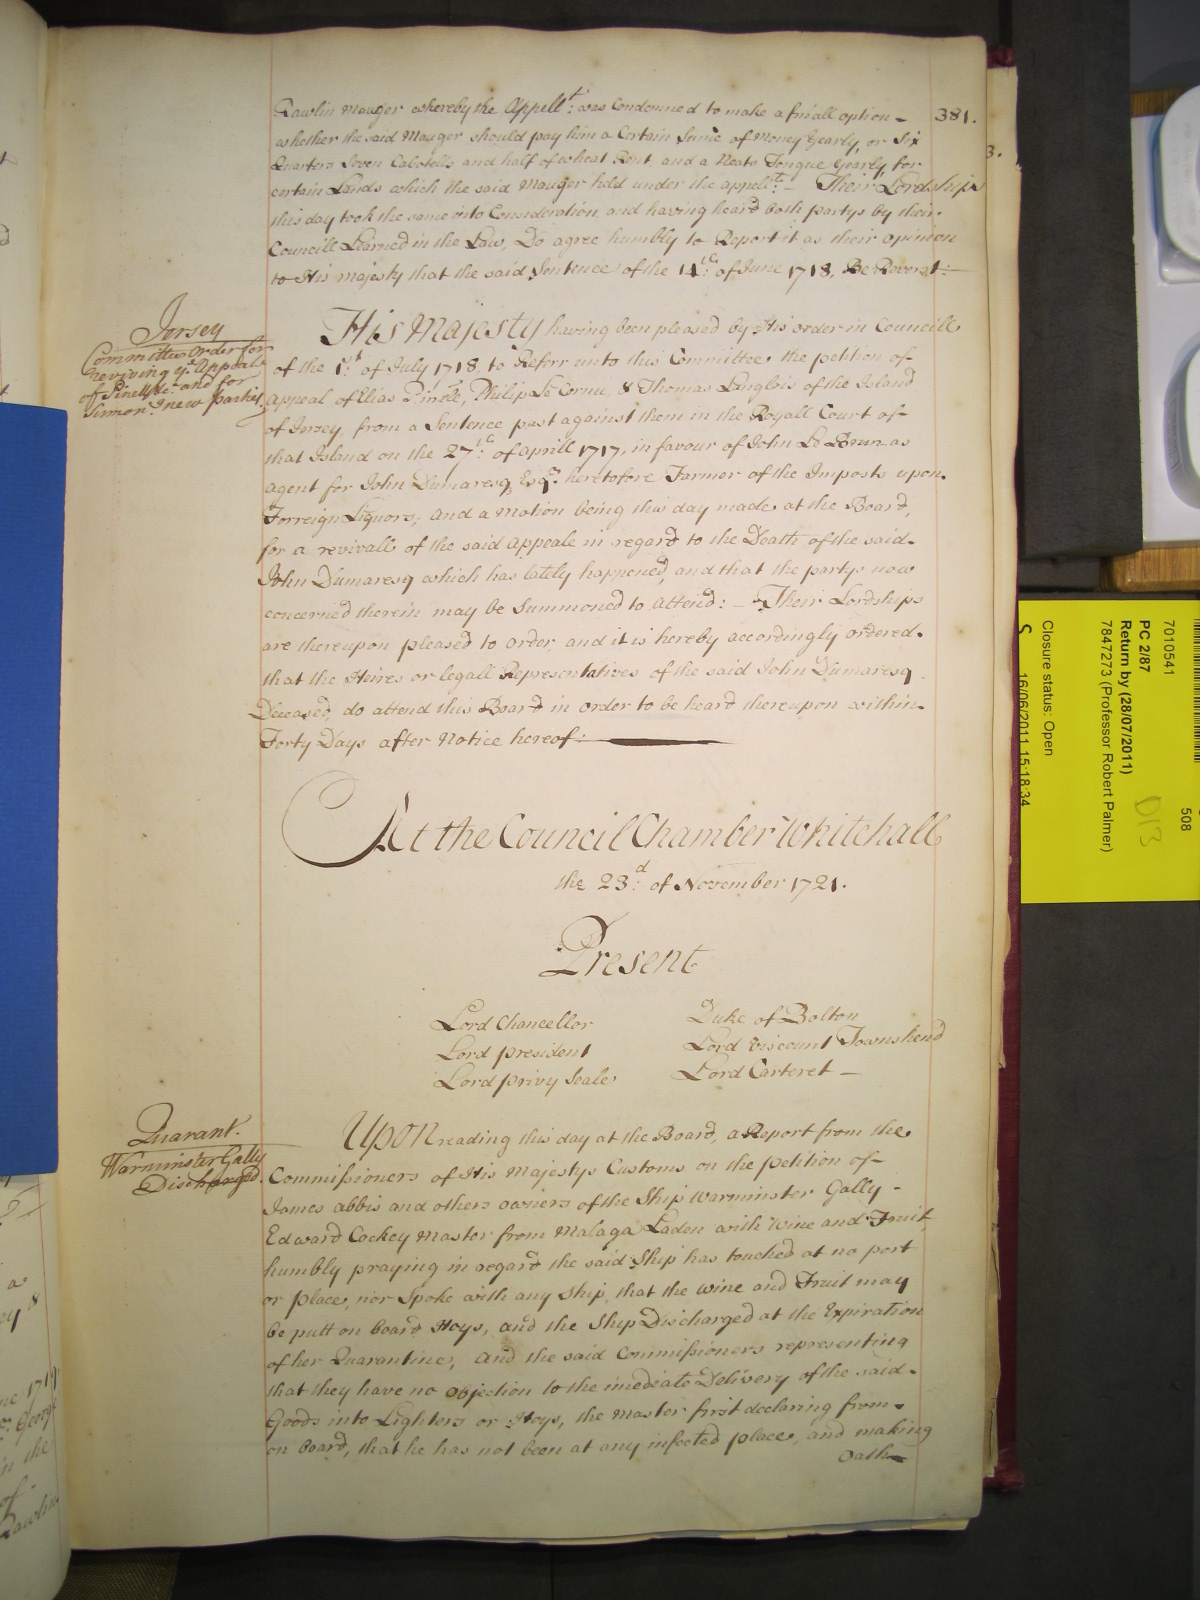 381.
Rawlin Mauger whereby the Appell.t was Condemned to make a small option -
whether the said Mauger should pay him a Certain Sume of Money Yearly, or Six
Quarters Seven Cabotells and half of wheat Rent, and a Neats Tongue Yearly for
certain Lands which the said Mauger held under the appell.t - Their Lordships
this day took the same into Consideration and having heard both partys by their
Councill Learned in the Law, Do agree humbly to Report it as their opinion
to His Majesty that the said Sentence of the 14.th of June 1718, Be Reverst:
Jersey
Committee Order for
reviving y.e Appeal
of Pinell &c.a and for
Summon.g new parties
His Majesty having been pleased by His Order in Councill
of the 1.st of July 1718, to Referr unto this Committee the petition of
Appeal of Elias Pinele, Philip Le Cornu, & Thomas Langlois of the Island
of Jersey, from a Sentence past against them in the Royall Court of
that Island on the 27.th of Aprill 1717, in favour of John Le Brun as
Agent for John Dumaresq Esq.r heretofore Farmer of the Imposts upon
Forreign Liquors; And a Motion being this day made at the Board,
for a revivall of the said Appeale in regard to the Death of the said
John Dumaresq which has lately happened, and that the partys now
concerned therein may be Summoned to Attend: - Their Lordships
are thereupon pleased to order, and it is hereby accordingly ordered
that the Heires or legall Representatives of the said John Dumaresq
Deceased, do attend this Board in order to be heard thereupon within
Forty Days after Notice hereof:
At the Council Chamber Whitehall
the 23.d of November 1721.
Present
Lord Chancellor
Lord president
Lord privy Seale
Duke of Bolton
Lord Viscount Townshend
Lord Carteret -
Quarant.
Warminster Gally
Discharged.
Upon reading this day at the Board, a Report from the
Commissioners of His Majestys Customs on the petition of
James Abbis and others owners of the Ship Warminster Gally -
Edward Cockey Master from Malaga Laden with Wine and Fruit
humbly praying in regard the said Ship has touched at no port
or place, nor Spoke with any Ship, that the Wine and Fruit may
be putt on board Hoys, and the Ship Discharged at the Expiration
of her Quarantine; And the said Commissioners representing
that they have no Objection to the imediate Delivery of the said
Goods into Lighters or Hoys, the Master first declaring from
on board, that he has not been at any infected place, and making
Oath
3.
7010541
508
PC 2/87
Return by (28/07/2011)
7847273 (Professor Robert Palmer)
D13
Closure status: Open
16/06/2011 15:18:34